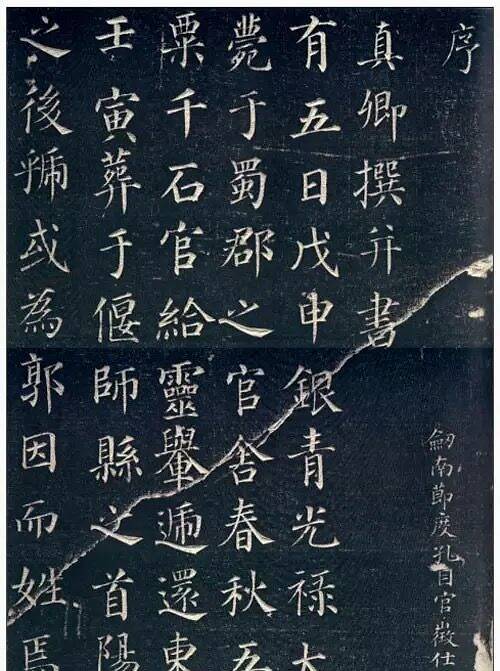 序
劒南節度孔目官徵仕
真卿撰并書
有五日戊申銀青光禄大
薨于蜀郡之官舍春秋五
粟千石官給靈轝逓還東
壬寅葬于偃師縣之首陽
之後虢或為郭因而姓焉